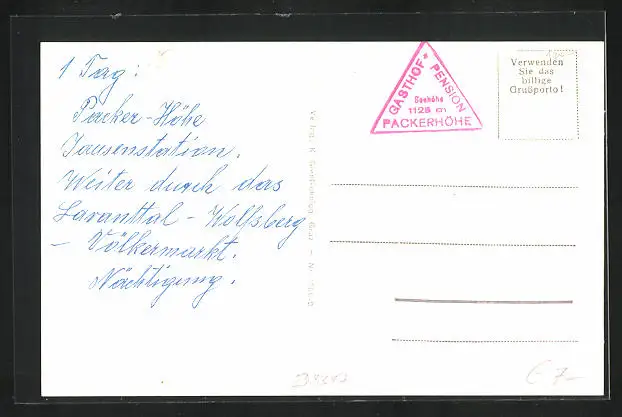 1 Tag:
Packer-Höhe
Jausenstation.
Weiter durch das
Lavanttal - Wolfsberg
- Völkermarkt.
Nächtigung.
GASTHOF * PENSION
Seehöhe
1125 m
PACKERHÖHE
Verwenden
Sie das
billige
Grußporto!
€ 7-